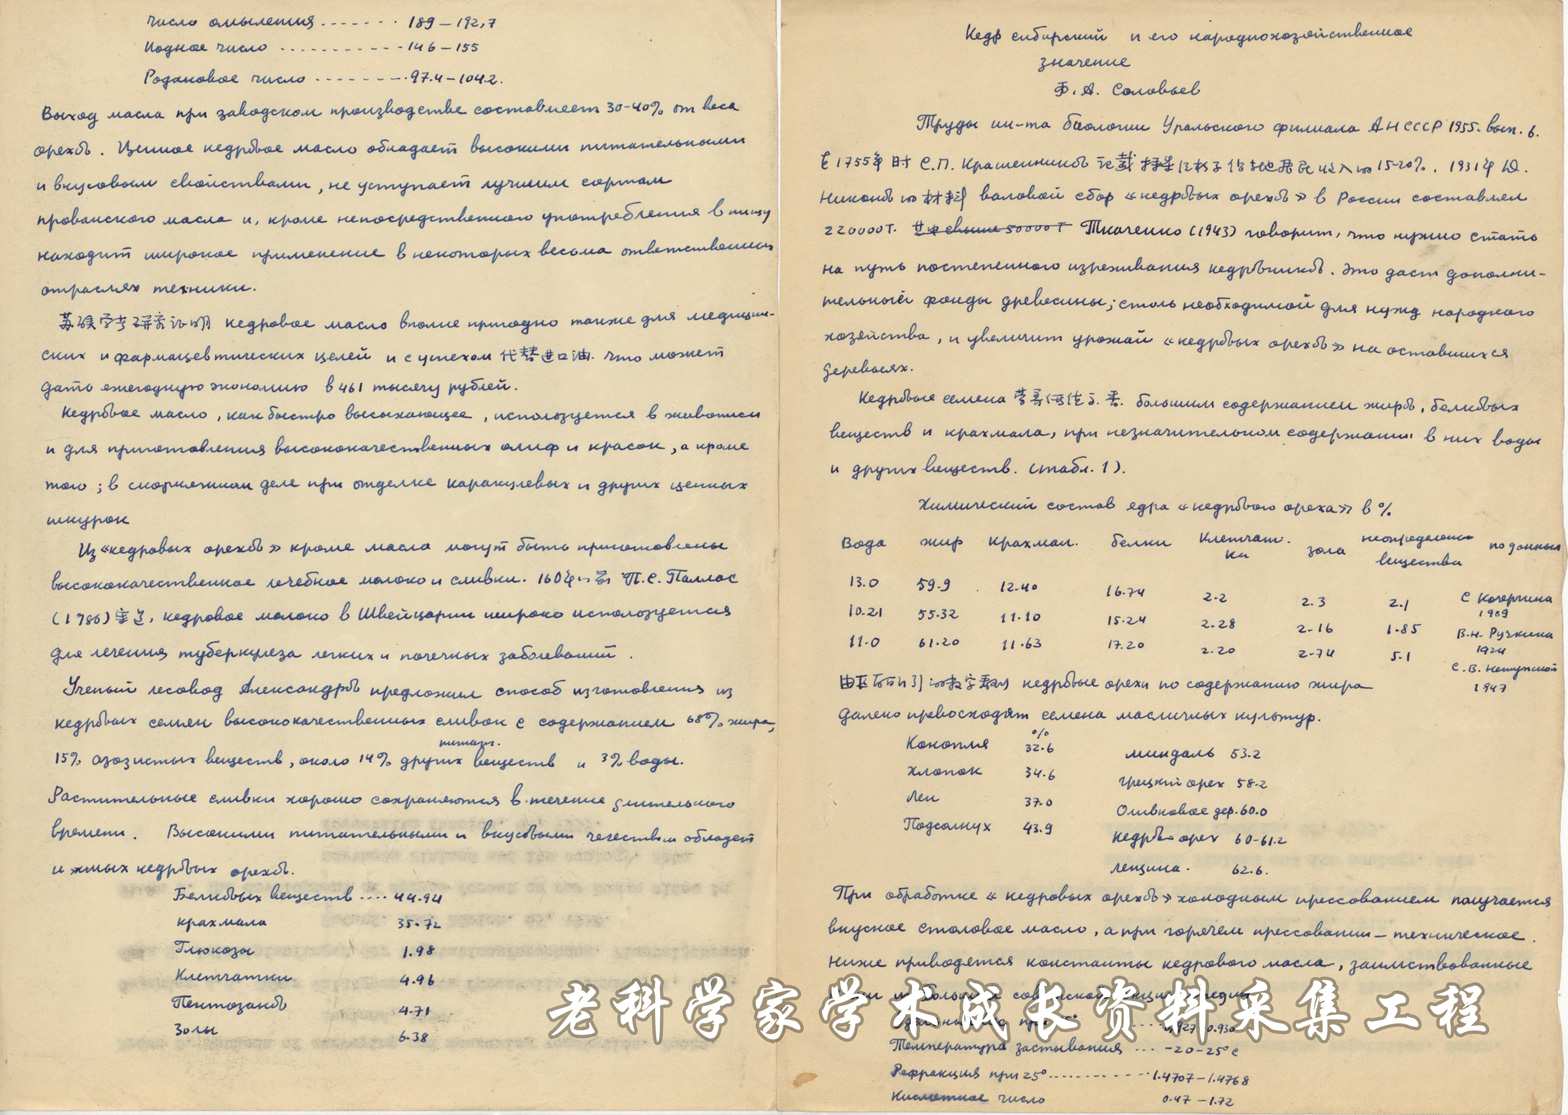 число омыления ------- 189 — 192,7
Иодное число ----------- 146 — 155
Родановое число -------- 97.4 — 104.2.
Выход масла при заводском производстве составляет 30-40% от веса
орехов. Ценное кедровое масло обладает высокими питательными
и вкусовыми свойствами, не уступает лучшим сортам
прованского масла и, кроме непосредственного употребления в пищу
находит широкое применение в некоторых весьма ответственных
отраслях техники.
苏联学者研究证明 кедровое масло вполне пригодно также для медицин-
ских и фармацевтических целей и с успехом 代替进口油. что может
дать ежегодную экономию в 461 тысячу рублей.
Кедровое масло, как быстро высыхающее, используется в живописи
и для приготовления высококачественных олиф и красок, а кроме
того; в скорняжном деле при отделке каракулевых и других ценных
шкурок
Из «кедровых орехов» кроме масла могут быть приготовлены
высококачественное лечебное молоко и сливки. 160年 П.С. Паллас
(1786) кедровое молоко в Швейцарии широко используется
для лечения туберкулеза легких и почечных заболеваний.
Ученый лесовод Александров предложил способ изготовления из
кедровых семян высококачественных сливок с содержанием 68% жира,
15% азотистых веществ, около 14% других питат. веществ и 3% воды.
Растительные сливки хорошо сохраняются в течение длительного
времени. Высокими питательными и вкусовыми качествами обладает
и жмых кедровых орехов.
Белковых веществ .... 44.94
крахмала 35.72
Глюкозы 1.98
Клетчатки 4.96
Пентозанов 4.71
Золы 6.38
Кедр сибирский и его народнохозяйственное
значение
Ф. А. Соловьев
Труды ин-та биологии Уральского филиала АН СССР 1955. вып. 6.
在1755年时 С.П. Крашенников 记载 居民收入的 15-20%. 1931年 Д.
Никонов 的材料 валовой сбор «кедровых орехов» в России составлял
220000т. свыше 50000 т Ткаченко (1943) говорит, что нужно стать
на путь постепенного изреживания кедровников. Это даст дополни-
тельный фонды древесины; столь необходимой для нужд народного
хозяйства, и увеличит урожай «кедровых орехов» на оставшихся
деревьях.
Кедровые семена большим содержанием жиров, белковых
веществ и крахмала, при незначительном содержании в них воды
и других веществ. (табл. 1).
Химический состав ядра «кедрового ореха» в %
Вода жир крахмал. белки Клетчат-ка зола неопределенн вещества по данным
13.0 59.9 12.40 16.74 2.2 2.3 2.1 С Кочергина 1909
10.21 55.32 11.10 15.24 2.28 2.16 1.85 В.Н. Ручкина 1924
11.0 61.20 11.63 17.20 2.20 2.74 5.1 С.В. 1947
数字 кедровые орехи по содержанию жира
далеко превосходят семена масличных культур.
%
Конопля 32.6 миндаль 53.2
хлопок 34.6 грецкий орех 58.2
Лен 37.0 Оливковое дер. 60.0
Подсолнух 43.9 кедров орех 60-61.2
лещина. 62.6.
При обработке «кедровых орехов» холодным прессованием получается
вкусное столовое масло, а при горячем прессовании — техническое.
Ниже приводятся константы кедрового масла, заимствованные
Температура застывания ... -20-25°C
Рефракция при 25° ---------- 1.4707 — 1.4768
Кислотное число 0.47 — 1.72
老科学家学术成长资料采集工程